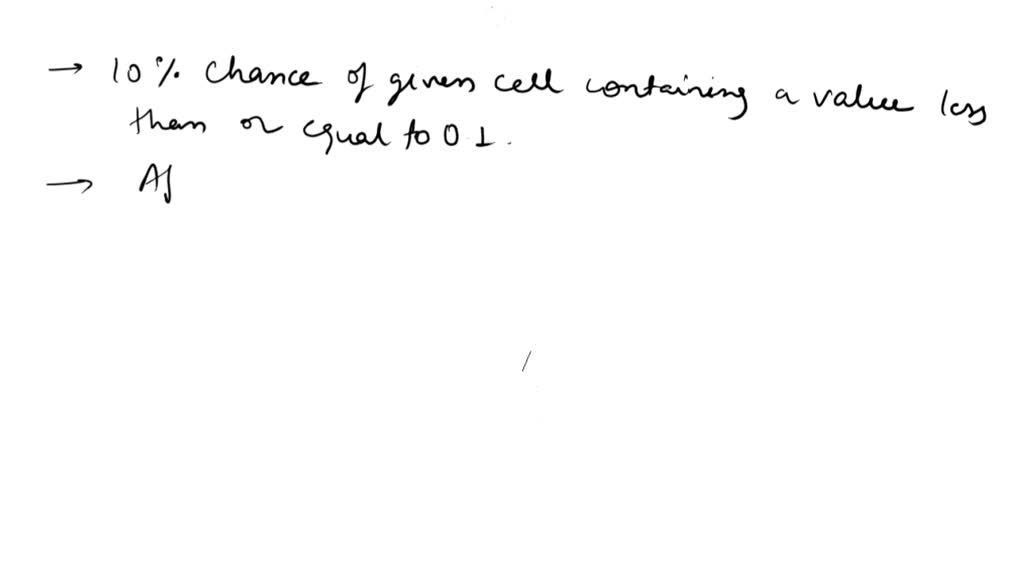 → 10% Chance of given cell containing a value less
than or equal to 0.1.
→ Af